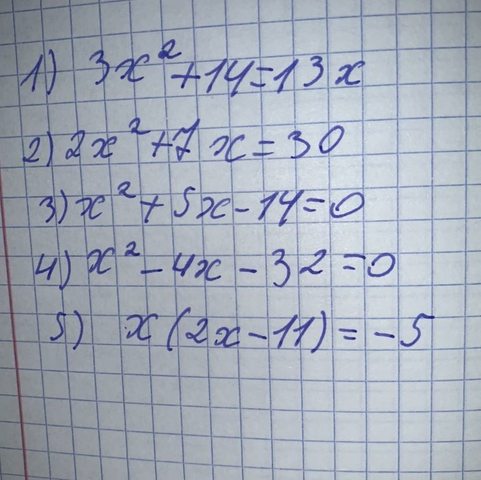 1) 3x²+14=13x
2) 2x²+7x=30
3) x²+5x-14=0
4) x²-4x-32=0
5) x(2x-11)=-5